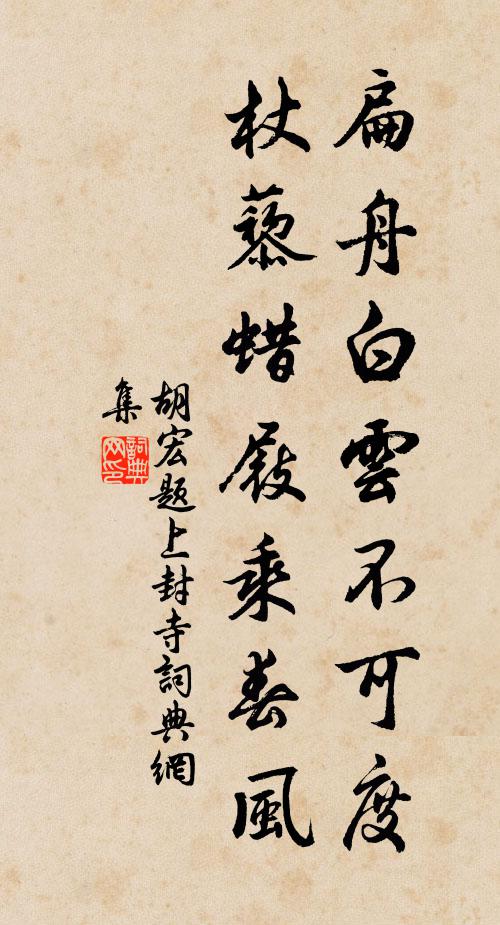 扁舟白雲不可度
杖藜蜡屐乘春風
胡宏题上封寺詞典網
集
詞典
网印